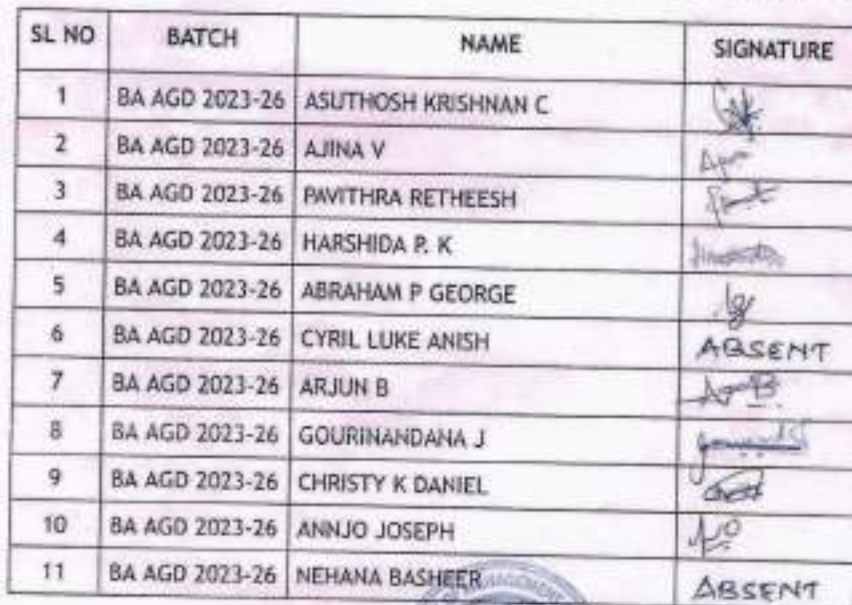 SL NO BATCH NAME SIGNATURE
1 BA AGD 2023-26 ASUTHOSH KRISHNAN C
2 BA AGD 2023-26 AJINA V
3 BA AGD 2023-26 PAVITHRA RETHEESH
4 BA AGD 2023-26 HARSHIDA P. K
5 BA AGD 2023-26 ABRAHAM P GEORGE
6 BA AGD 2023-26 CYRIL LUKE ANISH ABSENT
7 BA AGD 2023-26 ARJUN B
8 BA AGD 2023-26 GOURINANDANA J
9 BA AGD 2023-26 CHRISTY K DANIEL
10 BA AGD 2023-26 ANNJO JOSEPH
11 BA AGD 2023-26 NEHANA BASHEER ABSENT